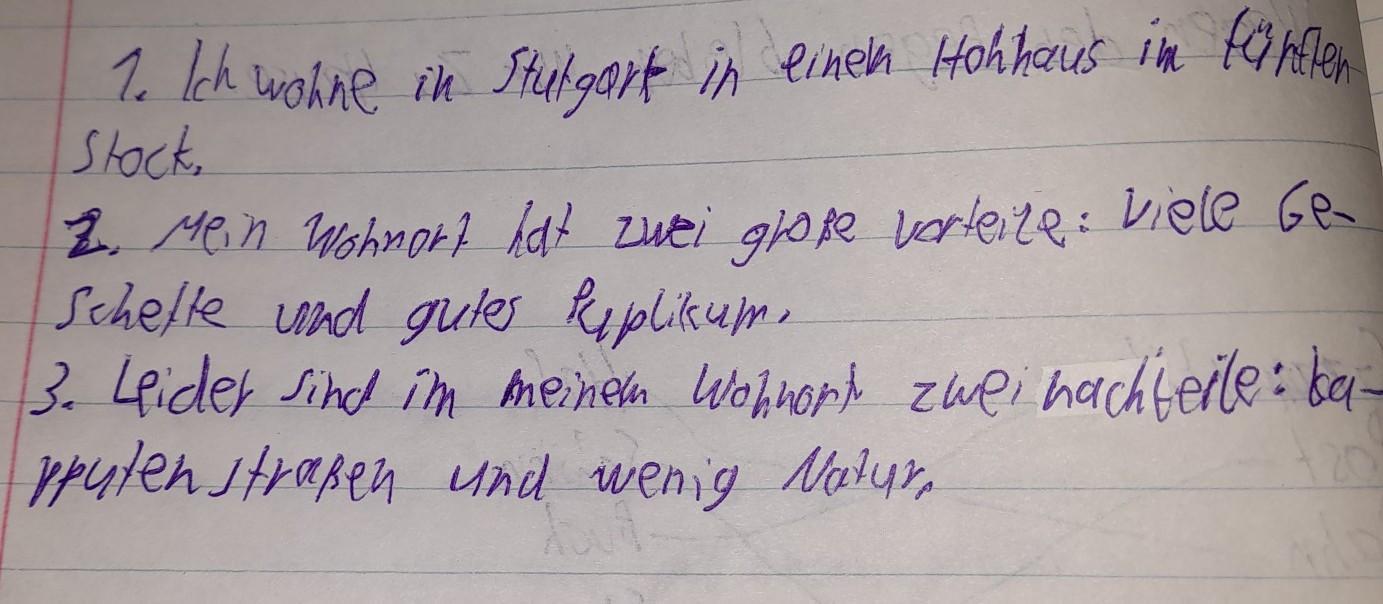 1. Ich wohne in Stutgart in einem Hohhaus im fünften
Stock.
2. Mein Wohnort hat zwei große vorteile: viele Ge-
schefte und gutes Puplikum.
3. Leider sind im meinem Wohnort zwei nachteile: ka-
pputen straßen und wenig Natur.